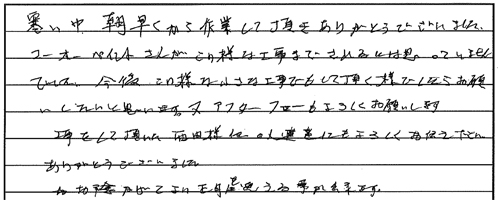 暑い中 朝早くから作業して頂きありがとうございました。
コーオーペイントさんがこの様な工事までされるとは思っていません
でした。今後この様な小さな工事でもして頂く様でしたらお願
いしたいと思います。又アフターフォローもよろしくお願いします
工事をして頂いた 西田様 他の 皆にもよろしくお伝え下さい
ありがとうございました
お陰 正月 迎える事が出来ます。